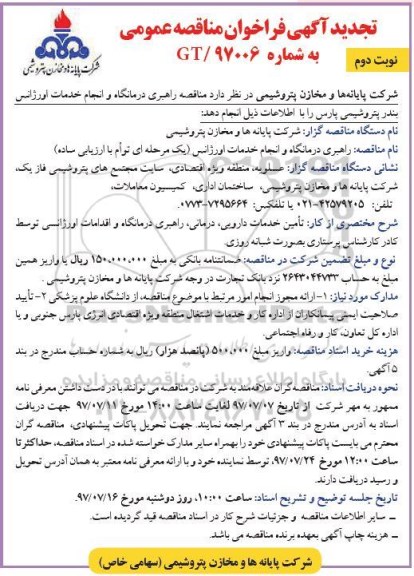 تجدید آگهی فراخوان مناقصه عمومی
به شماره GT/ ۹۷۰۰۶
نوبت دوم
شرکت پایانه ها و مخازن پتروشیمی
شرکت پایانه‌ها و مخازن پتروشیمی در نظر دارد مناقصه راهبری درمانگاه و انجام خدمات اورژانس
بندر پتروشیمی پارس را با اطلاعات ذیل انجام دهد:
نام دستگاه مناقصه گزار: شرکت پایانه ها و مخازن پتروشیمی
نام مناقصه: راهبری درمانگاه و انجام خدمات اورژانس (یک مرحله ای توأم با ارزیابی ساده)
نشانی دستگاه مناقصه گزار: عسلویه، منطقه ویژه اقتصادی، سایت مجتمع های پتروشیمی فاز یک،
شرکت پایانه ها و مخازن پتروشیمی، ساختمان اداری، کمیسیون معاملات،
تلفن: ۴۲۵۷۹۲۰۵-۰۲۱ یا تلفکس: ۷۲۹۵۶۶۴-۰۷۷۳
شرح مختصری از کار: تأمین خدمات دارویی، درمانی، راهبری درمانگاه و اقدامات اورژانسی توسط
کادر کارشناس پرستاری بصورت شبانه روزی.
نوع و مبلغ تضمین شرکت در مناقصه: ضمانتنامه بانکی به مبلغ ۱۵۰,۰۰۰,۰۰۰ ریال یا واریز همین
مبلغ به حساب ۲۶۴۳۰۴۴۷۳۳ نزد بانک تجارت در وجه شرکت پایانه ها و مخازن پتروشیمی .
مدارک مورد نیاز: ۱- ارائه مجوز انجام امور مرتبط با موضوع مناقصه، از دانشگاه علوم پزشکی ۲- تأیید
صلاحیت ایمنی پیمانکاران از اداره کار و خدمات اشتغال منطقه ویژه اقتصادی انرژی پارس جنوبی و یا
اداره کل تعاون، کار و رفاه اجتماعی.
هزینه خرید اسناد مناقصه: واریز مبلغ ۵۰۰,۰۰۰ (پانصد هزار) ریال به شماره حساب مندرج در بند
۵ آگهی.
نحوه دریافت اسناد: مناقصه گران علاقه‌مند به شرکت در مناقصه می توانند با در دست داشتن معرفی نامه
ممهور به مهر شرکت از تاریخ ۹۷/۰۷/۰۷ لغایت ساعت ۱۴:۰۰ مورخ ۹۷/۰۷/۱۱ جهت دریافت
اسناد به آدرس مندرج در بند ۳ آگهی مراجعه نمایند. جهت تحویل پاکات پیشنهادی، مناقصه گران
محترم می بایست پاکات پیشنهادی خود را بهمراه سایر مدارک خواسته شده در اسناد مناقصه، حداکثر تا
ساعت ۱۲:۰۰ مورخ ۹۷/۰۷/۲۴، توسط نماینده خود و با ارائه معرفی نامه معتبر به همان آدرس تحویل
و رسید دریافت دارند.
تاریخ جلسه توضیح و تشریح اسناد: ساعت ۱۰:۰۰، روز دوشنبه مورخ ۹۷/۰۷/۱۶.
ـ سایر اطلاعات مناقصه و جزئیات شرح کار در اسناد مناقصه قید گردیده است.
ـ هزینه چاپ آگهی بعهده برنده مناقصه می باشد.
شرکت پایانه ها و مخازن پتروشیمی (سهامی خاص)